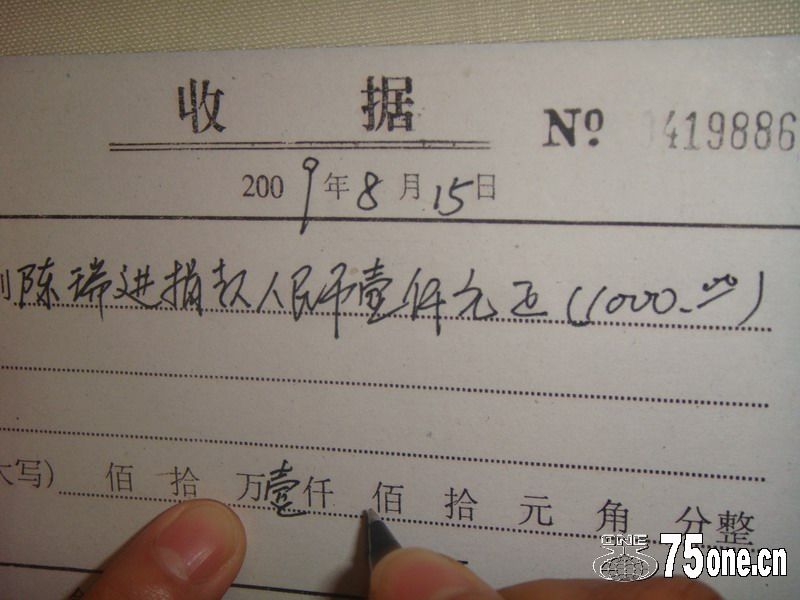 收据
No 419886
2009年8月15日
到陈瑞进捐款人民币壹仟元正(1000.00)
大写) 佰 拾 万壹仟 佰 拾 元 角 分整
ONE 75one.cn